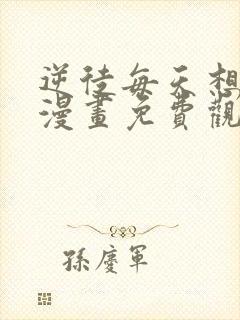 逆徒每天想
漫畫免費觀
孫慶軍